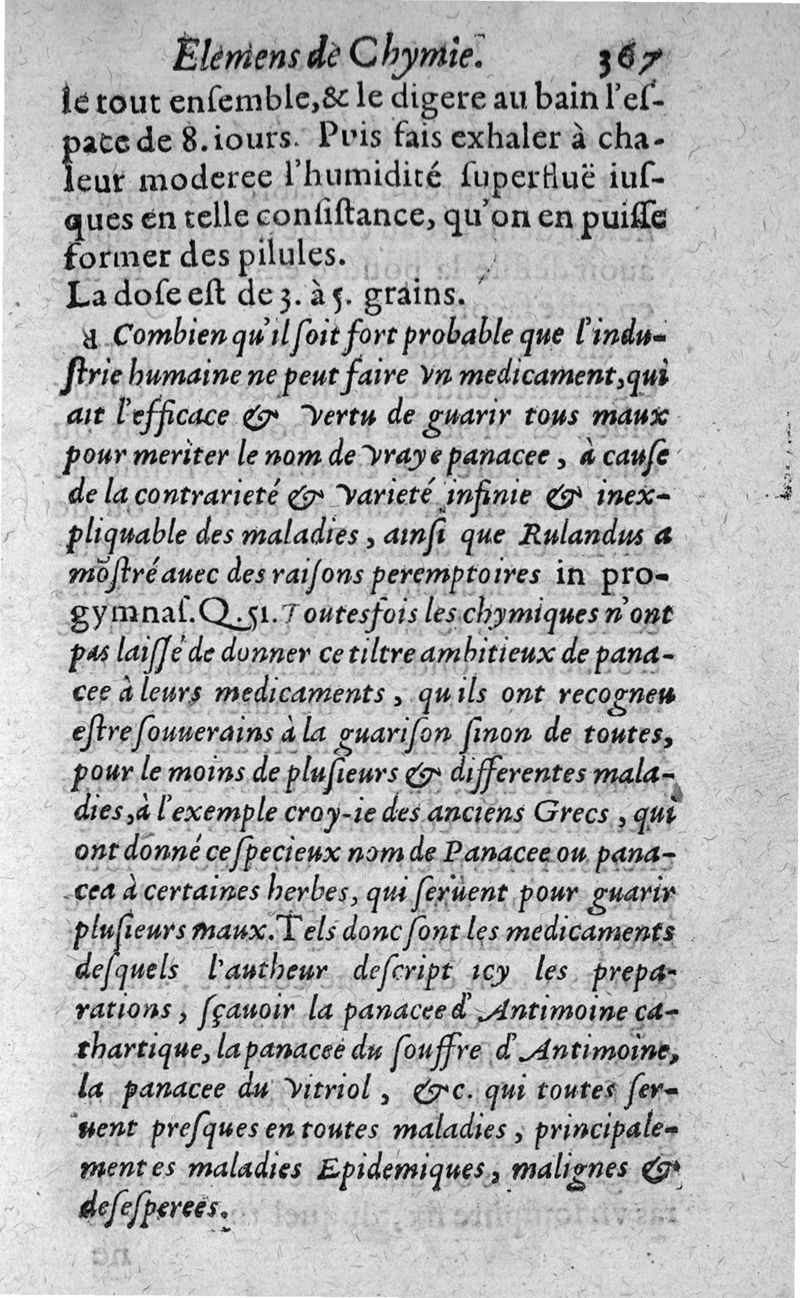 Elemens de Chymie. 367
le tout enſemble,& le digere au bain l'eſ-
pace de 8. iours. Puis fais exhaler à cha-
leur moderee l'humidité ſuperfluë iuſ-
ques en telle conſiſtance, qu'on en puiſſe
former des pilules.
La doſe eſt de 3. à 5. grains.
a Combien qu'il ſoit fort probable que l'indu-
ſtrie humaine ne peut faire vn medicament,qui
ait l'efficace & vertu de guarir tous maux
pour meriter le nom de vraye panacee, à cauſe
de la contrarieté & varieté infinie & inex-
pliquable des maladies, ainſi que Rulandus a
mõſtré auec des raiſons peremptoires in pro-
gymnaſ.Q.51.Toutesfois les chymiques n'ont
pas laiſſé de donner ce tiltre ambitieux de pana-
cee à leurs medicaments, qu'ils ont recogneu
eſtre ſouuerains à la guariſon ſinon de toutes,
pour le moins de pluſieurs & differentes mala-
dies,à l'exemple croy-ie des anciens Grecs, qui
ont donné ce ſpecieux nom de Panacee ou pana-
cea à certaines herbes, qui ſeruent pour guarir
pluſieurs maux.Tels donc ſont les medicaments
deſquels l'autheur deſcript icy les prepa-
rations, ſçauoir la panacee d'Antimoine ca-
thartique, la panacee du ſouffre d'Antimoine,
la panacee du Vitriol, &c. qui toutes ſer-
uent preſques en toutes maladies, principale-
ment es maladies Epidemiques, malignes &
deſeſperees.